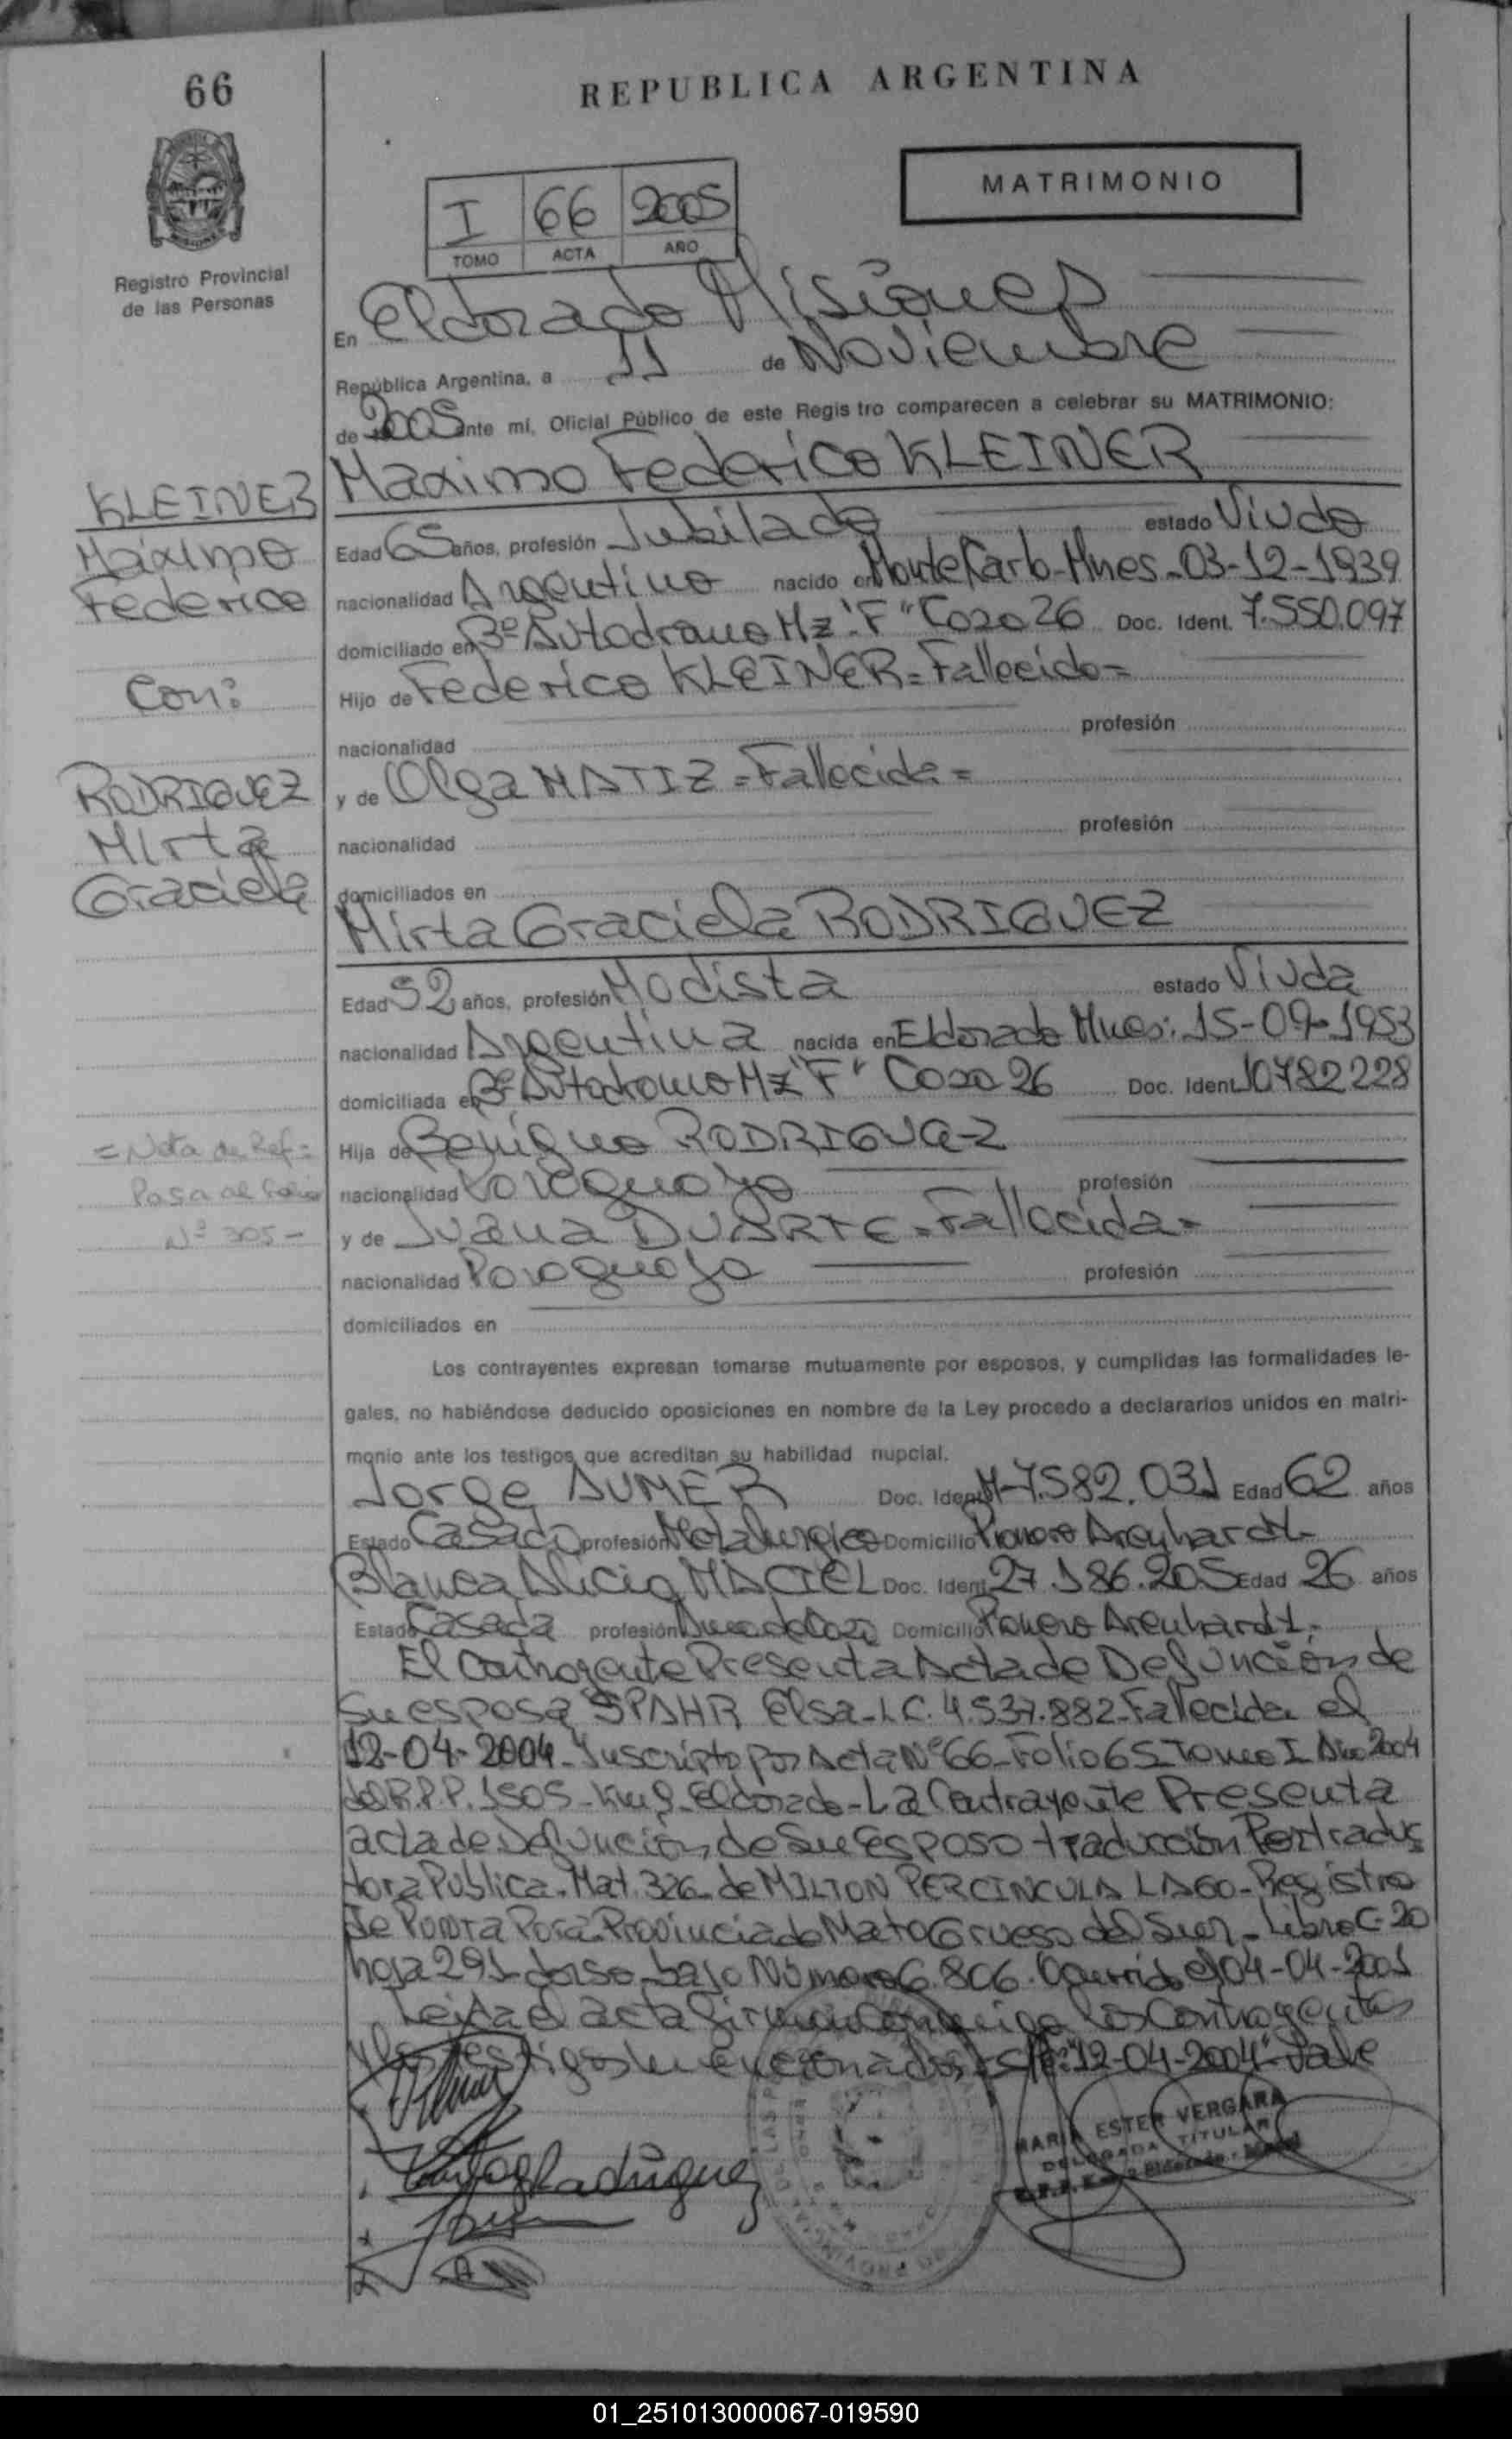 66
REPUBLICA ARGENTINA
MATRIMONIO
I 66 2005
TOMO ACTA AÑO
Registro Provincial
de las Personas
En Eldorado Misiones
República Argentina, a 11 de Noviembre
de 2005 ante mí, Oficial Público de este Registro comparecen a celebrar su MATRIMONIO:
KLEINER
Máximo
Federico
Con:
RODRIGUEZ
Mirta
Graciela
Maximo Federico KLEINER
Edad 65 años, profesión Jubilado estado Viudo
nacionalidad Argentino nacido en Monte Carlo-Mnes-03-12-1939
domiciliado en Bº Autodromo Mz "F" Casa 26 Doc. Ident. 7.550.097
Hijo de Federico KLEINER=Fallecido=
nacionalidad profesión
y de Olga MATIZ=Fallecida=
nacionalidad profesión
domiciliados en
Mirta Graciela RODRIGUEZ
Edad 52 años, profesión Modista estado Viuda
nacionalidad Argentina nacida en Eldorado Mnes: 15-09-1953
domiciliada en Bº Autodromo Mz "F" Casa 26 Doc. Ident. 10782228
Hija de Benigno RODRIGUEZ
=Nota de Ref=
Pasa al folio
Nº 305-
nacionalidad Paraguayo profesión
y de Juana DUARTE=Fallecida=
nacionalidad Paraguaya profesión
domiciliados en
Los contrayentes expresan tomarse mutuamente por esposos, y cumplidas las formalidades le-
gales, no habiéndose deducido oposiciones en nombre de la Ley procedo a declararlos unidos en matri-
monio ante los testigos que acreditan su habilidad nupcial.
Jorge AUMER Doc. Ident. M-7.582.031 Edad 62 años
Estado Casado profesión Metalurgico Domicilio Pionero
Blanca Alicia MACIEL Doc. Ident. 27.186.205 Edad 26 años
Estado Casada profesión Ama de Casa Domicilio Pionero
El Contrayente Presenta Acta de Defunción de
Su esposa SPAHR Elsa-L.C. 4.537.882-Fallecida el
12-04-2004-Inscripto por Acta Nº 66-Folio 65 Tomo I Año 2004
del R.P.P. 1505-Km 9-Eldorado-La Contrayente Presenta
acta de Defunción de Su Esposo traducción Por traduc
tora Publica-Mat. 326-de MILTON PERCINCULA LAGO-Registro
de Ponta Porá-Provincia de Mato Grueso del Sur-Libro C-20
hoja 291-dorso-bajo Número 6.806-Ocurrido el 04-04-2001
Leída el acta firman conmigo los Contrayentes
y los testigos mencionados "12-04-2004" Vale
MARIA ESTER VERGARA
DELEGADA TITULAR
01_251013000067-019590